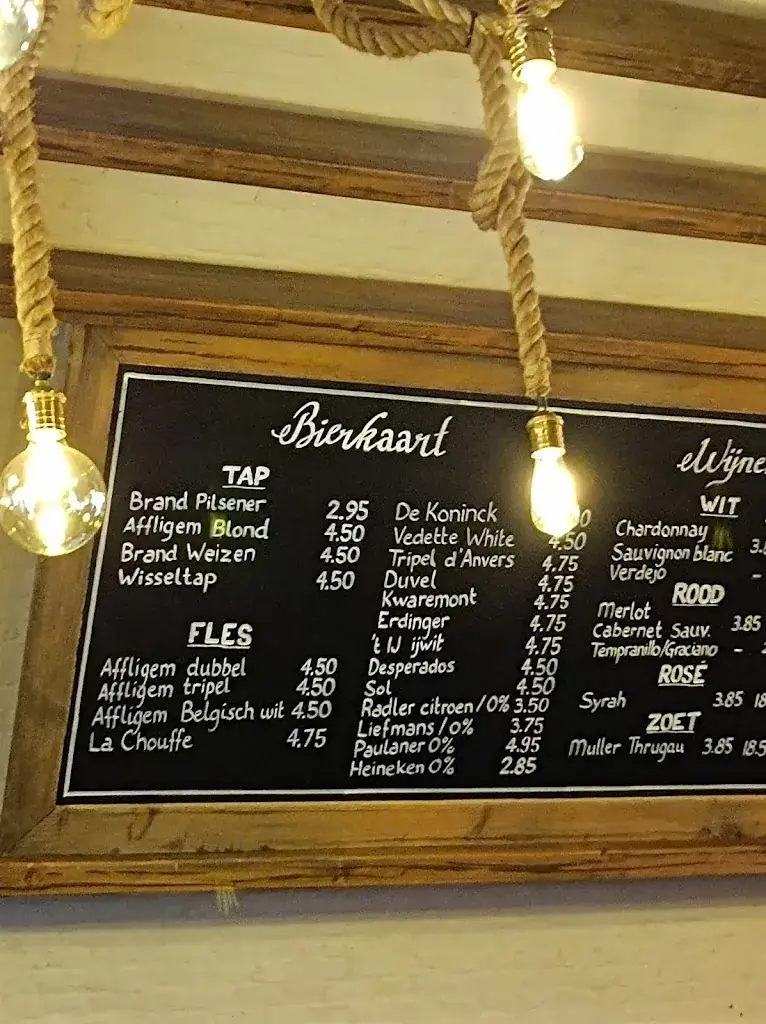 Bierkaart
TAP
Brand Pilsener 2.95
Affligem Blond 4.50
Brand Weizen 4.50
Wisseltap 4.50
FLES
Affligem dubbel 4.50
Affligem tripel 4.50
Affligem Belgisch wit 4.50
La Chouffe 4.75
De Koninck
Vedette White 4.50
Tripel d'Anvers 4.75
Duvel 4.75
Kwaremont 4.75
Erdinger 4.75
't IJ ijwit 4.75
Desperados 4.50
Sol 4.50
Radler citroen/0% 3.50
Liefmans/0% 3.75
Paulaner 0% 4.95
Heineken 0% 2.85
Wijne
WIT
Chardonnay
Sauvignon blanc 3.
Verdejo -
ROOD
Merlot
Cabernet Sauv. 3.85
Tempranillo/Graciano -
ROSÉ
Syrah 3.85 18
ZOET
Muller Thrugau 3.85 18.5